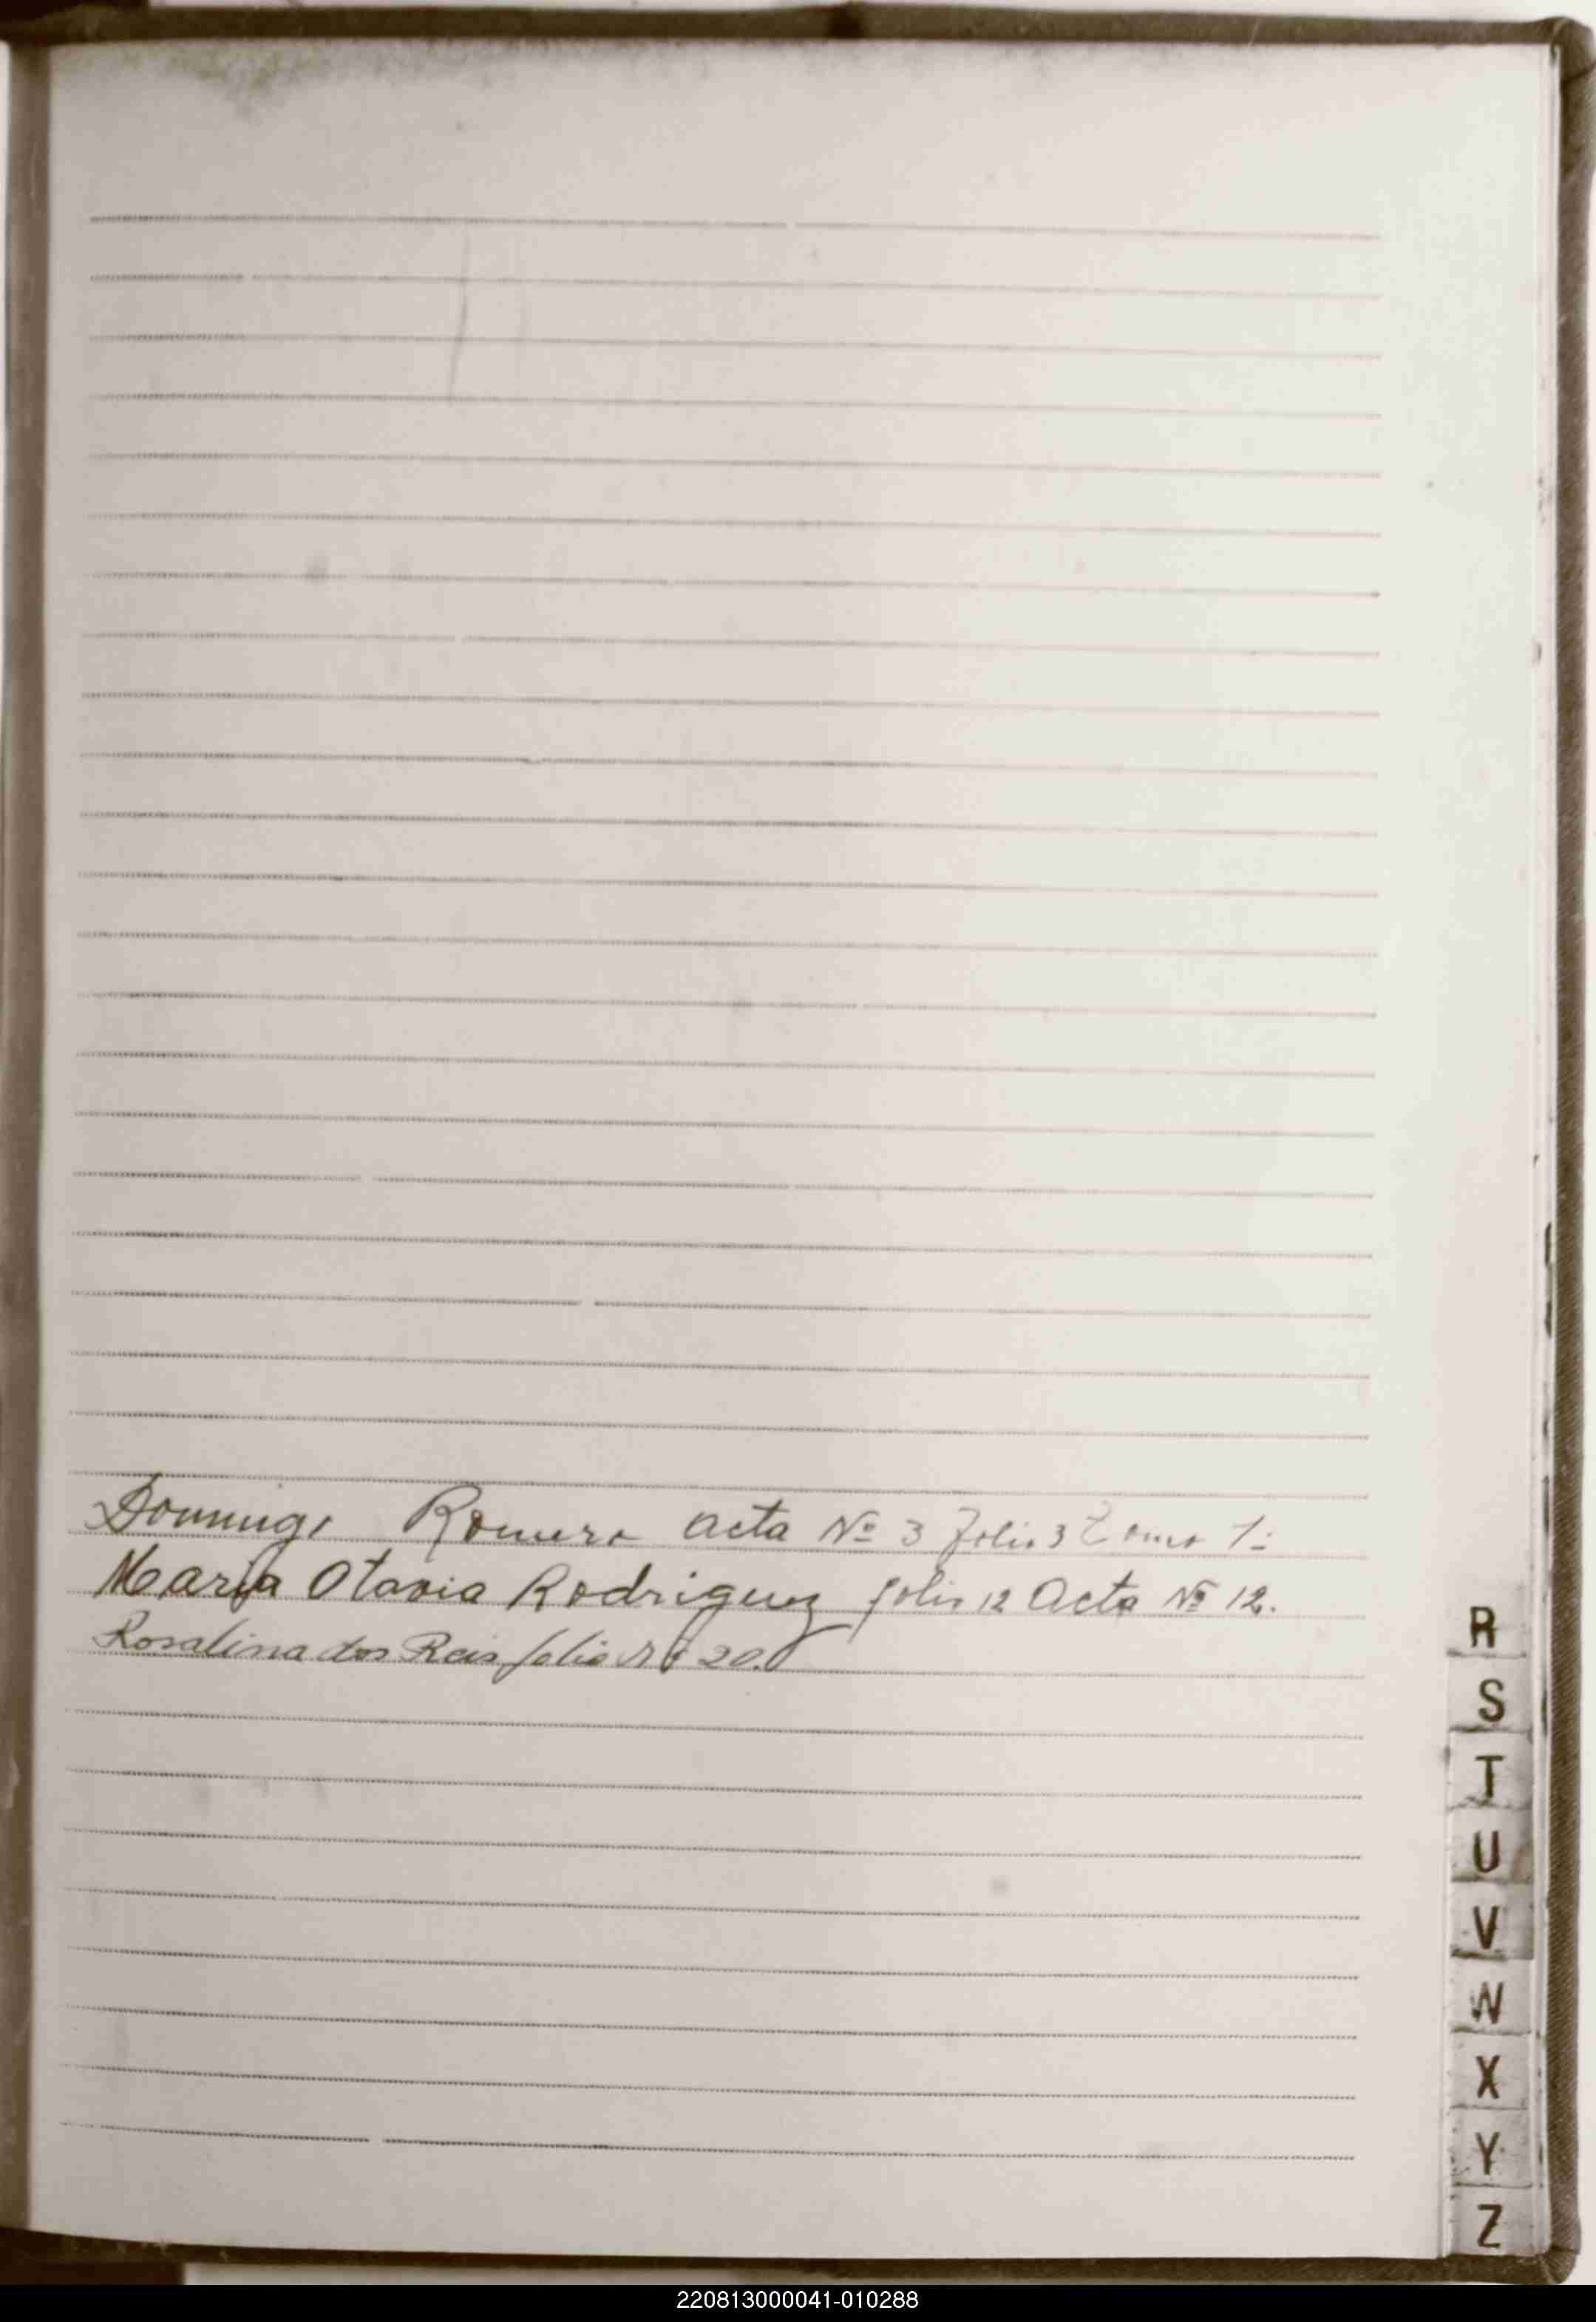 Domingo Romero acta Nº 3 folio 3 Tomo 1:
María Otavia Rodriguez folio 12 Acta Nº 12.
Rosalina dos Reis folio Nº 20.
R
S
T
U
V
W
X
Y
Z
220813000041-010288